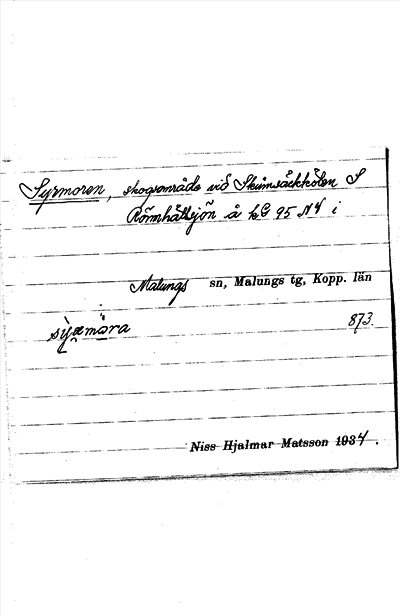 Syrmoren, skogsområde vid Skumsäckkölen S
Römhåltsjön å kG 95 NV i
Malungs sn, Malungs tg, Kopp. län
873.
Niss Hjalmar Matsson 1934.